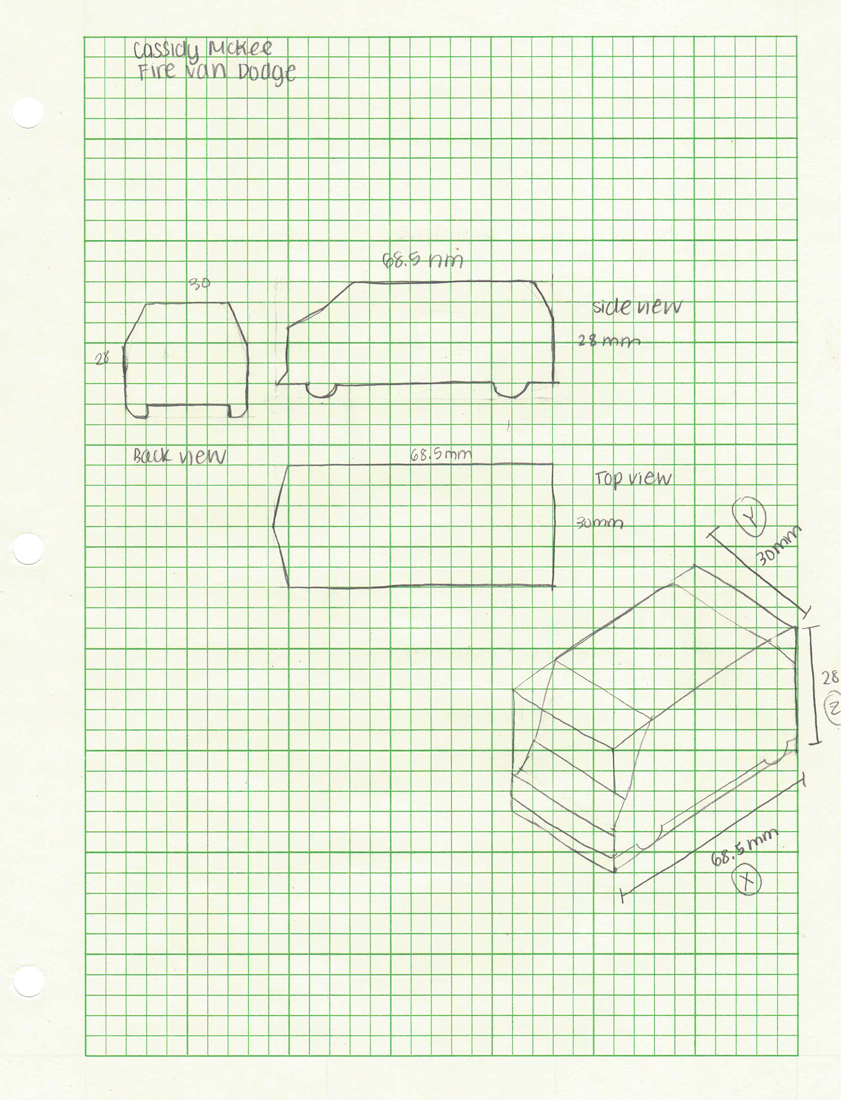 Cassidy McKee
Fire Van Dodge
68.5 mm
30
side view
28 mm
28
Back view
68.5mm
Top view
30mm
Y
30mm
28
Z
68.5mm
X